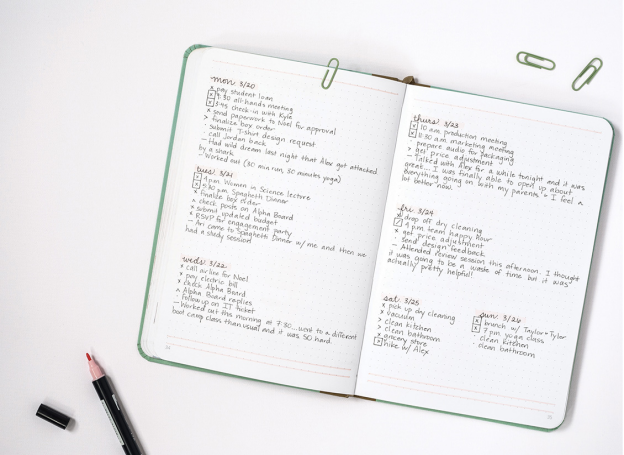 mon. 3/20
x pay student loan
x 9:30 all-hands meeting
x 3:45 check-in with Kyle
x send paperwork to Noel for approval
> finalize box order
· submit T-shirt design request
· call Jordan back
– Had wild dream last night that Alex got attacked
by a shark.
– Worked out (30 min run, 30 minutes yoga)
tues. 3/21
x 4 p.m. Women in Science lecture
x 5:30 p.m. Spaghetti Dinner
x finalize box order
x check posts on Alpha Board
x submit updated budget
x RSVP for engagement party
– Ari came to Spaghetti Dinner w/ me and then we
had a study session!
weds. 3/22
x call airline for Noel
x pay electric bill
x check Alpha Board
Alpha Board replies
· follow up on IT ticket
– Worked out this morning at 7:30...went to a different
boot camp class than usual and it was SO hard.
thurs. 3/23
x 10 a.m. production meeting
x 11:30 a.m. marketing meeting
· prepare audio for packaging
> get price adjustment
– Talked with Alex for a while tonight and it was
great... I was finally able to open up about
everything going on with my parents. I feel a
lot better now.
fri. 3/24
x drop off dry cleaning
4 p.m. team happy hour
x get price adjustment
· send design feedback
– Attended review session this afternoon. I thought
it was going to be a waste of time but it was
actually pretty helpful!
sat. 3/25
x pick up dry cleaning
x vacuum
> clean kitchen
> clean bathroom
x grocery store
x hike w/ Alex
sun. 3/26
x brunch w/ Taylor + Tyler
x 7 p.m. yoga class
· clean kitchen
· clean bathroom